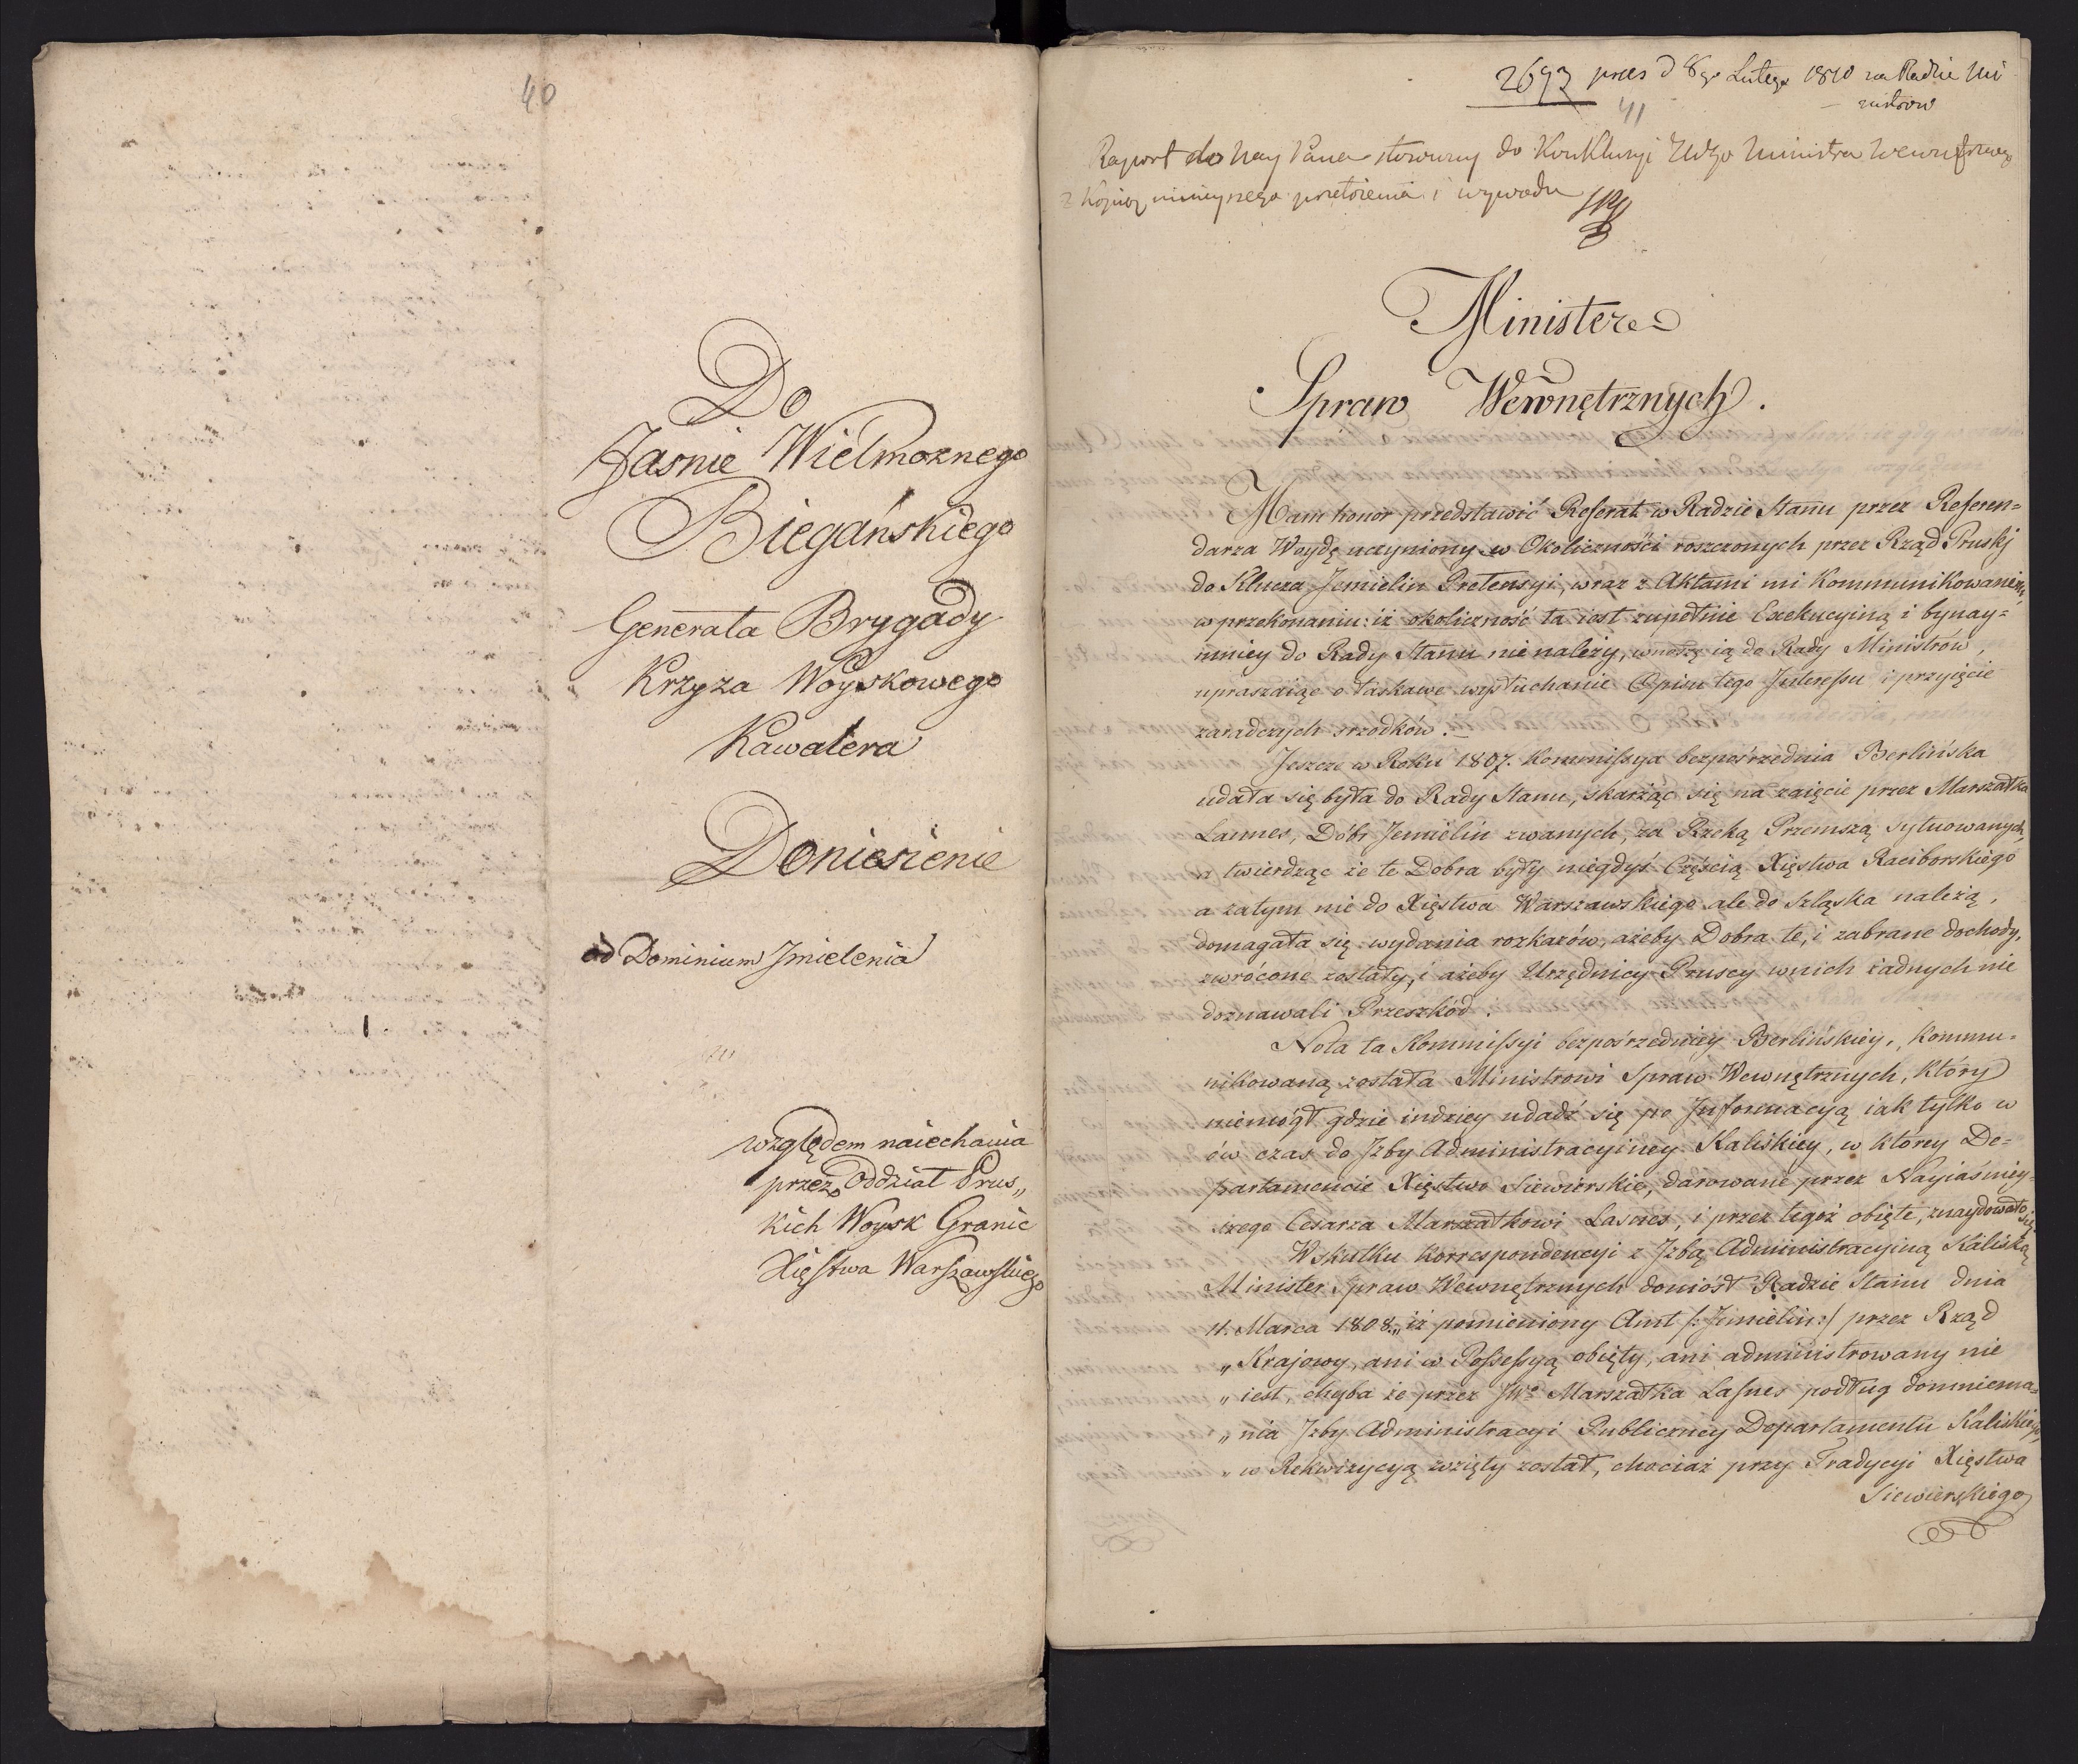 40
Do
Jasnie Wielmoznego
Biegańskiego
Generała Brygady
Krzyza Woyskowego
Kawalera
Doniesienie
od Dominium Jmielenia
względem naiechania
przez Oddział Prus„
kich Woysk Granic
Xięstwa Warszawskiego
2693 prees d 8go Lutego 1810 na Radzie Mi
nistrow
41
Raport do Nay Pana stosowny do Konkluzyi JWgo Ministra Wewnętrznego
z Kopią ninieyszego przełożenia i wywodu
Minister
Spraw Wewnętrznych.
Mam honor przedstawić Referat w Radzie Stanu przez Referen=
darza Woydę uczyniony w Okoliczności roszczonych przez Rząd Pruski
do Klucza Jemielin Pretensyi, wraz z Aktami mi Kommunikowanemi,
w przekonaniu: iż okoliczność ta iest zupełnie Exekucyiną i bynay=
mniey do Rady Stanu nie należy, wnoszę ią do Rady Ministrów,
upraszaiąc o łaskawe wysłuchanie Opisu tego Interessu i przyięcie
zaradczych srzodków.
Jeszcze w Roku 1807. Kommissya bezpośrzednia Berlińska
udała się była do Rady Stanu, skarżąc się na zaięcie przez Marszałka
Lannes, Dóbr Jemielin zwanych, za Rzeką Przemszą sytuowanych,
a twierdząc że te Dobra były niegdyś Częścią Xięstwa Raciborskiego
a zatym nie do Xięstwa Warszawskiego ale do Szląska należą,
domagała się wydania rozkazów, ażeby Dobra te, i zabrane dochody,
zwrócone zostały, i ażeby Urzędnicy Pruscy w nich żadnych nie
doznawali Przeszkód.
Nota ta Kommissyi bezpośrzedniey Berlińskiey, kommu=
nikowaną została Ministrowi Spraw Wewnętrznych, który
niemógł gdzie indziey udadź się po Informacyą iak tylko w
ów czas do Izby Administracyiney Kaliskiey, w ktorey De=
partamencie Xięstwo Siewierskie, darowane przez Nayiaśniey=
szego Cesarza Marszałkowi Lasnes, i przez tegoż obięte, znaydowało się.
W skutku korrespondencyi z Izbą Administracyiną Kaliską
Minister Spraw Wewnętrznych doniósł Radzie Stanu dnia
11. Marca 1808. „iż pomieniony Amt /:Jemielin:/ przez Rząd
„Krajowy, ani w Possessyą obięty, ani administrowany nie
„iest, chyba że przez JWo Marszałka Lasnes podług domniema=
„nia Izby Administracyi Publiczney Departamentu Kaliskiego,
„w Rekwizycyą wzięty został, chociaż przy Tradycyi Xięstwa
Siewierskiego